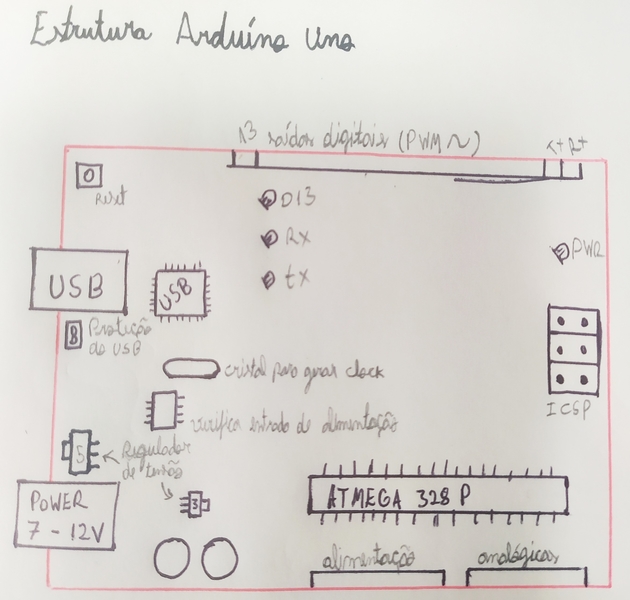 Estrutura Arduíno Uno
13 saídas digitais (PWM ~)
TX RX
Reset
D13
RX
TX
PWR
USB
USB
8
Proteção
do USB
cristal para gerar clock
verifica entrada de alimentação
ICSP
5
Regulador
de tensão
3
POWER
7 - 12V
ATMEGA 328 P
alimentação
analógicas